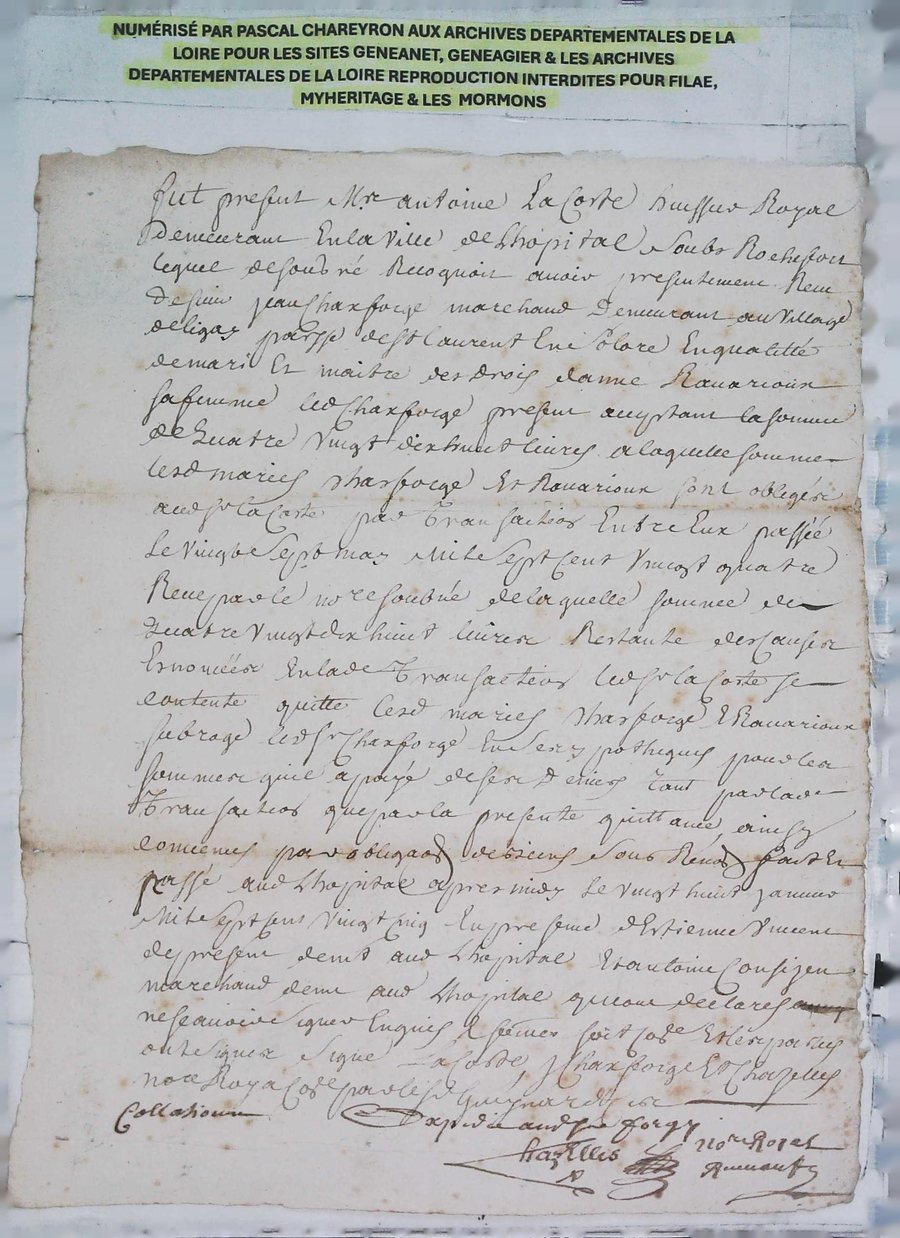 NUMÉRISÉ PAR PASCAL CHAREYRON AUX ARCHIVES DEPARTEMENTALES DE LA
LOIRE POUR LES SITES GENEANET, GENEAGIER & LES ARCHIVES
DEPARTEMENTALES DE LA LOIRE REPRODUCTION INTERDITES POUR FILAE,
MYHERITAGE & LES MORMONS
fut present Mre antoine La Coste huissier Royal
Demeurant En la Ville de Lhopital Soubs Rochefort
lequel de son gré Recognoit avoir presentement Receu
de sieur jean Charforge marchand Demeurant au Village
de ligay parsse de st Laurent En Solore En qualitté
de mari Et maitre des Drois danne Ravarioux
sa femme led Charforge present acceptant la somme
de Quatre Vingt dix huict livres a laquelle somme
lesd mariés Charforge Et Ravarioux sont obligés
aud sr la Coste par Transaction Entre Eux passée
le Vingt Sept may Mile Sept Cent Vingt quatre
Receu par le nore soubné de laquelle somme de
Quatre Vingt dix huict livres Restante des Causes
Enoncées En lade Transaction led sr la Coste se
contente quitte lesd mariés Charforge Et Ravarioux
subroge led sr Charforge En Ses ypotheques pour les
sommes qu'il a payé de ses Deniers Tant par lade
Transaction que par la presente quittance, ainsy
convenus par obligaon des biens Sous Renon fait Et
passé aud Lhopital apres midy Le vingt huict janvier
Mile Sept Cent Vingt Cinq En presence d'Estienne Vincent
de present demt aud Lhopital Et antoine
marchand demt aud Lhopital qui ont declarés
ne scavoir signer Enquis Et sommes soit Code Et les parties
ont signés Signé La Coste, J Charforge Et Chazelles
nore Royal Code par led
Collationné
Expedié aud sr forge
Chazelles nore Royal